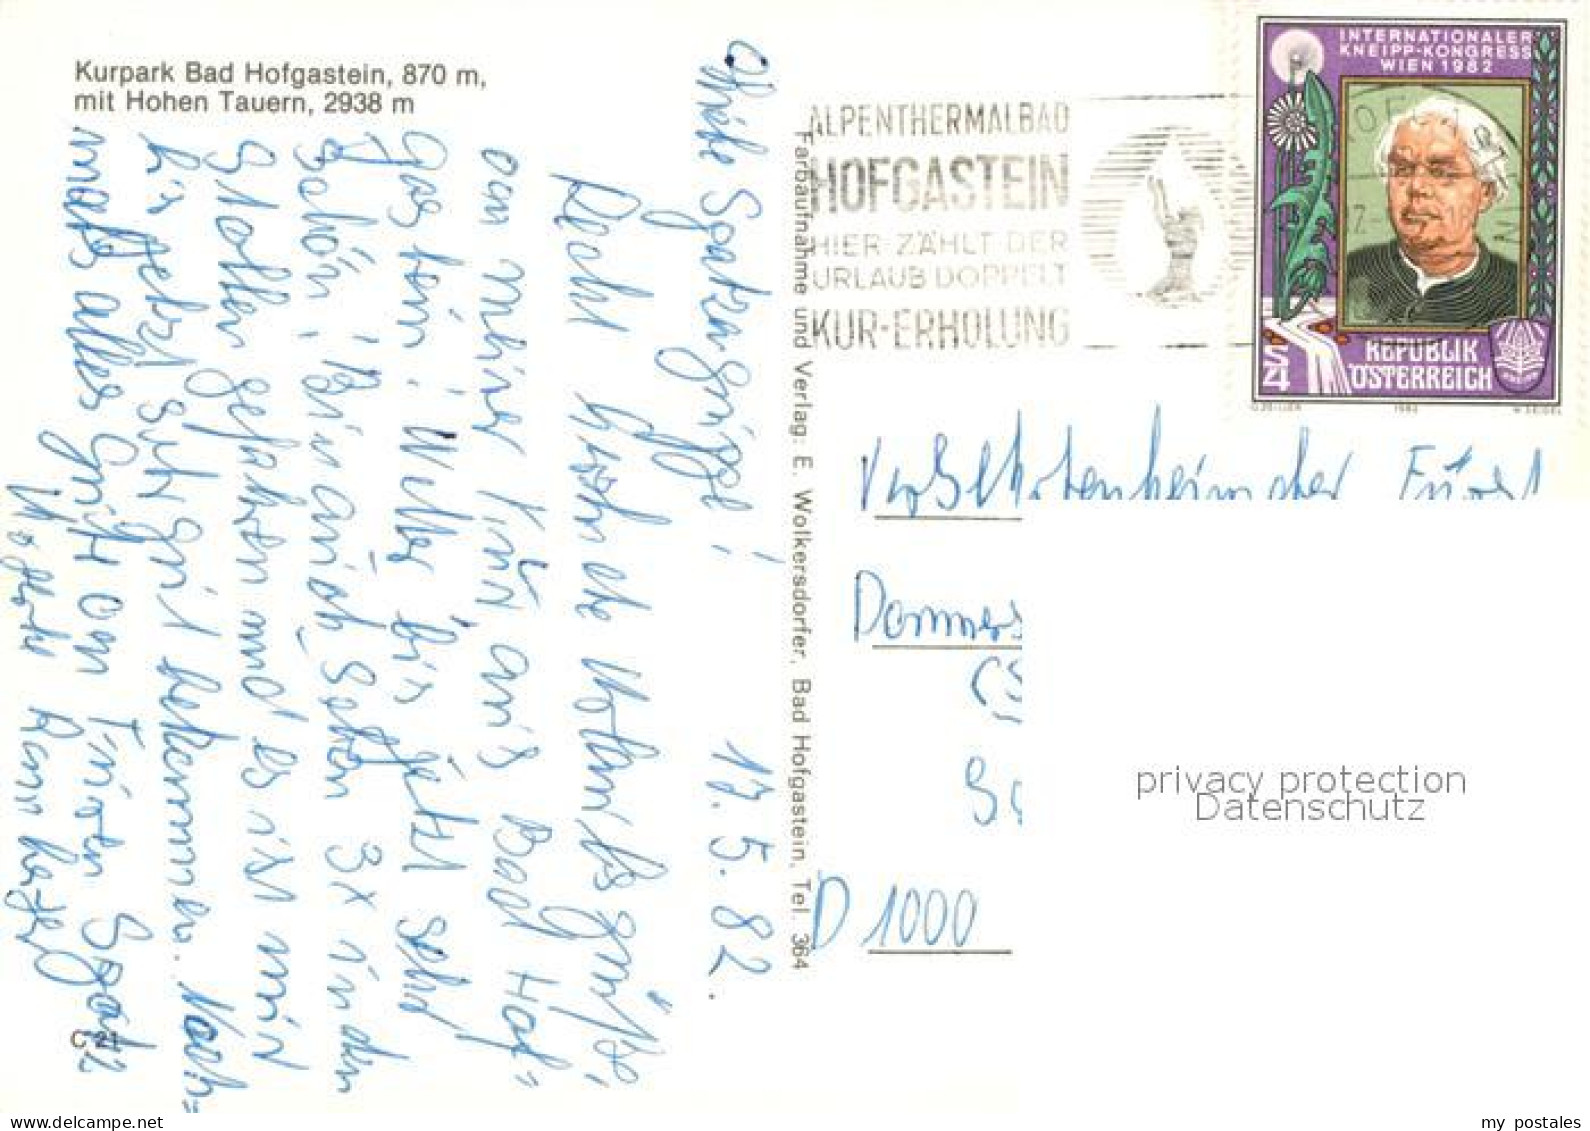 Kurpark Bad Hofgastein, 870 m,
mit Hohen Tauern, 2938 m
Liebe Spatzengruppe!
17. 5. 82.
Recht herzliche Urlaubsgrüße,
von meiner Kur aus Bad Hof=
gastein! Wetter bis jetzt sehr
schön, bin auch schon 3x in den
Stollen gefahren und es ist mir
bis jetzt sehr gut bekommen. Noch=
mals alles Gute von Eurem Spatz
C 21
Farbaufnahme und Verlag: E. Wolkersdorfer, Bad Hofgastein, Tel. 364
ALPENTHERMALBAD
HOFGASTEIN
HIER ZÄHLT DER
URLAUB DOPPELT
KUR-ERHOLUNG
INTERNATIONALER
KNEIPP-KONGRESS
WIEN 1982
S4
REPUBLIK
ÖSTERREICH
KNEIPP
O. ZEILLER 1982 W. SEIDEL
D 1000
privacy protection
Datenschutz
my_postales